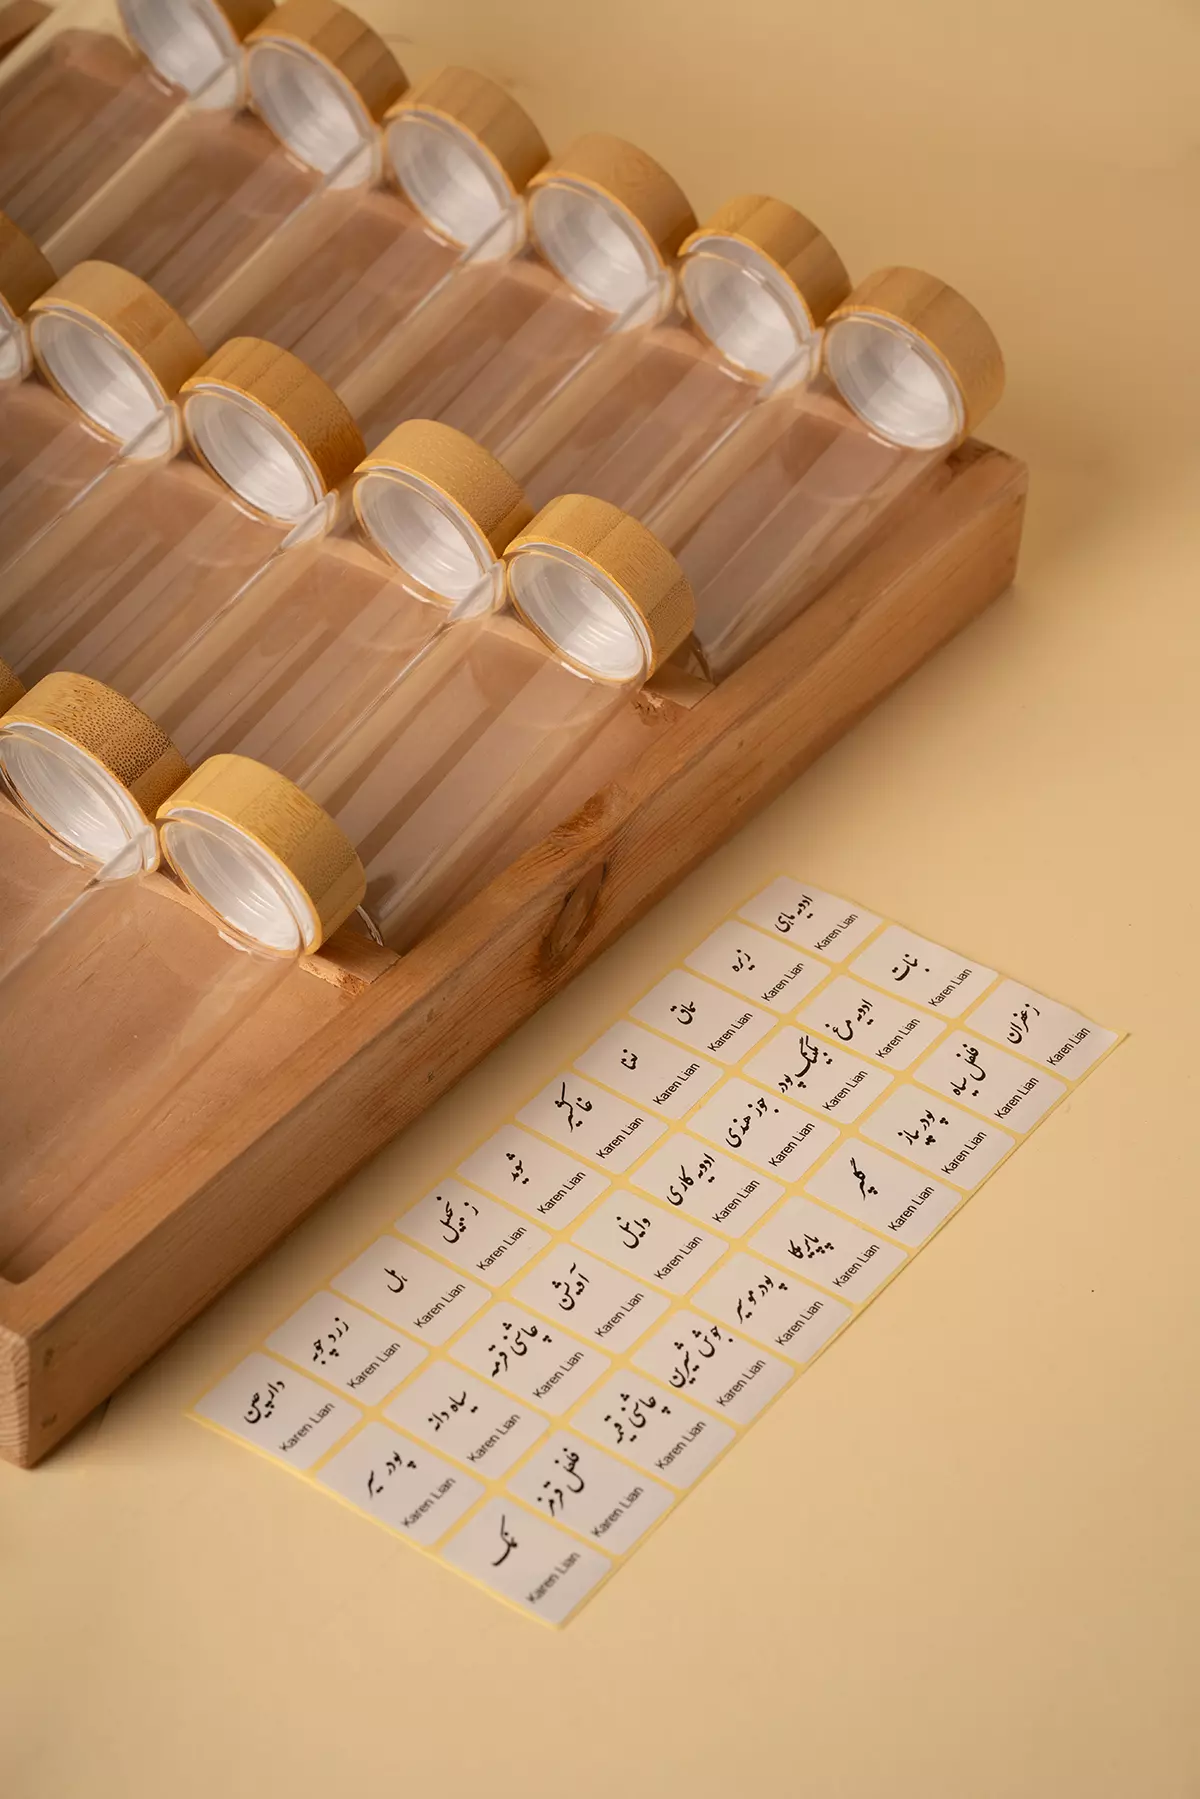 ادویه ماهی
Karen Lian
زیره
Karen Lian
سماق
Karen Lian
نعنا
Karen Lian
خاکشیر
Karen Lian
شوید
Karen Lian
زنجبیل
Karen Lian
هل
Karen Lian
زردچوبه
Karen Lian
دارچین
Karen Lian
نبات
Karen Lian
ادویه مرغ
Karen Lian
بکینگ پودر
Karen Lian
جوز هندی
Karen Lian
ادویه کاری
Karen Lian
وانیل
Karen Lian
آویشن
Karen Lian
چاشنی قرمه
Karen Lian
سیاه دانه
Karen Lian
پودر سیر
Karen Lian
زعفران
Karen Lian
فلفل سیاه
Karen Lian
پودر پیاز
Karen Lian
گلپر
Karen Lian
پاپریکا
Karen Lian
پودر موسیر
Karen Lian
جوش شیرین
Karen Lian
چاشنی قیمه
Karen Lian
فلفل قرمز
Karen Lian
نمک
Karen Lian